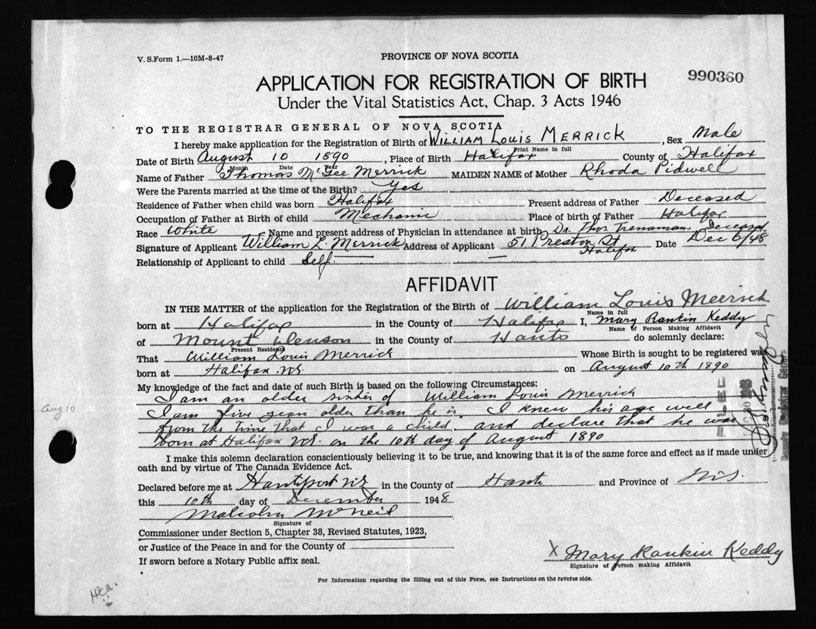 V. S. Form 1.—10M-8-47
PROVINCE OF NOVA SCOTIA
990360
APPLICATION FOR REGISTRATION OF BIRTH
Under the Vital Statistics Act, Chap. 3 Acts 1946
TO THE REGISTRAR GENERAL OF NOVA SCOTIA
I hereby make application for the Registration of Birth of WILLIAM LOUIS MERRICK, Sex Male
Print Name in full
Date of Birth August 10 1890, Place of Birth Halifax County of Halifax
Month Date Year
Name of Father Thomas McGee Merrick MAIDEN NAME of Mother Rhoda Pidwell
Were the Parents married at the time of the Birth? Yes
Residence of Father when child was born Halifax Present address of Father Deceased
Occupation of Father at Birth of child Mechanic Place of birth of Father Halifax
Race White Name and present address of Physician in attendance at birth Dr. Thos Deceased
Signature of Applicant William L. Merrick Address of Applicant 51 Preston St Halifax Date Dec 6/48
Relationship of Applicant to child Self.
AFFIDAVIT
IN THE MATTER of the application for the Registration of the Birth of William Louis Meerick
Name in full
born at Halifax in the County of Halifax I, Mary Rankin Keddy
Name of Person Making Affidavit
of Mount Denson in the County of Hants do solemnly declare:
Present Residence
That William Louis Merrick Whose Birth is sought to be registered was
born at Halifax N.S. on August 10th 1890
My knowledge of the fact and date of such Birth is based on the following Circumstances:
I am an older sister of William Louis Merrick
I am five year older than he is. I knew his age well
from the time that I was a child. and declare that he was
born at Halifax N.S. on the 10th day of August 1890
Aug 10
I make this solemn declaration conscientiously believing it to be true, and knowing that it is of the same force and effect as if made under
oath and by virtue of The Canada Evidence Act.
Declared before me at Hantsport N.S. in the County of Hants and Province of N.S.
this 10th day of December 1948
Malcolm McNeil
Signature of
Commissioner under Section 5, Chapter 38, Revised Statutes, 1923,
or Justice of the Peace in and for the County of
If sworn before a Notary Public affix seal.
X Mary Rankin Keddy
Signature of person making Affidavit
For Information regarding the filling out of this Form, see Instructions on the reverse side.